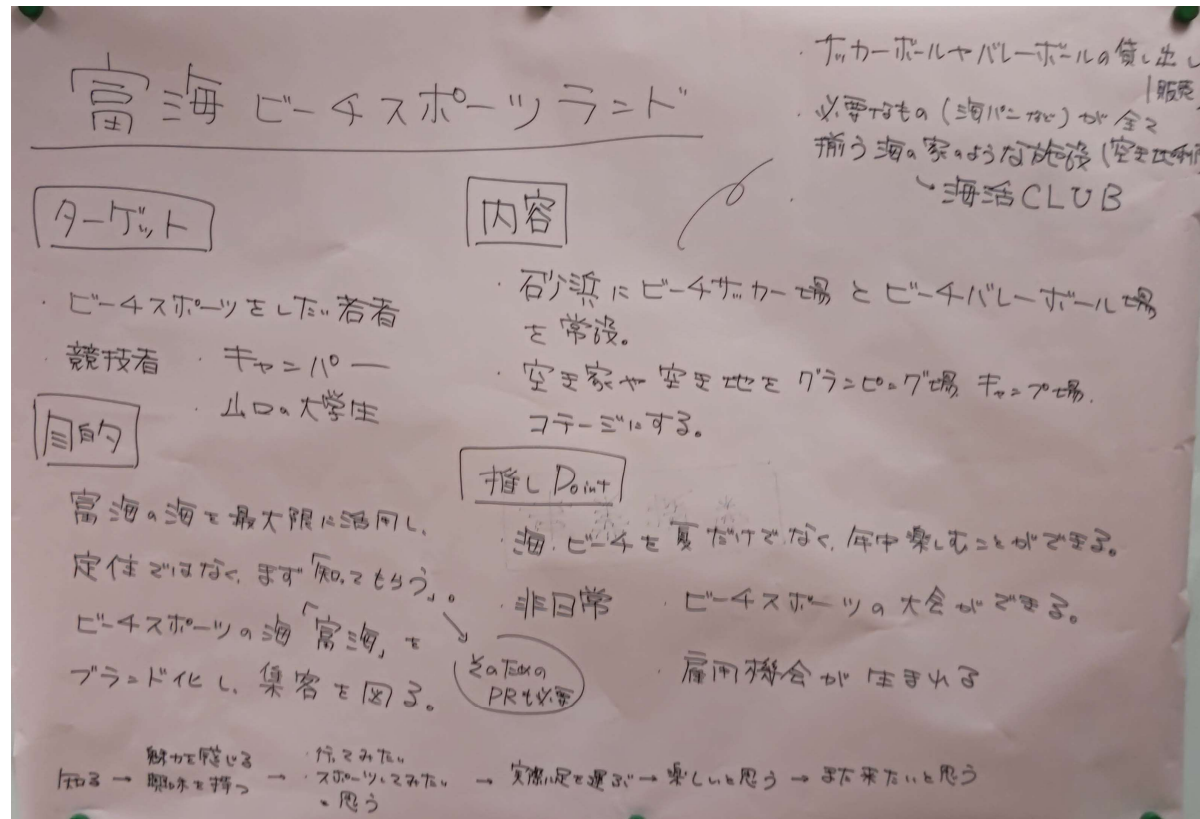 富海ビーチスポーツランド
・サッカーボールやバレーボールの貸し出し
販売
・必要なもの(海パンなど)が全て
揃う海の家のような施設(空き地利
↳海活CLUB
ターゲット
・ビーチスポーツをしたい若者
・競技者 ・キャンパー
・山口の大学生
目的
富海の海を最大限に活用し、
定住ではなく、まず「知ってもらう」。
ビーチスポーツの海「富海」を
ブランド化し、集客を図る。
そのための
PRも必要
内容
・砂浜にビーチサッカー場とビーチバレーボール場
を常設。
・空き家や空き地をグランピング場、キャンプ場、
コテージにする。
推しPoint
・海、ビーチを夏だけでなく、年中楽しむことができる。
・非日常 ・ビーチスポーツの大会ができる。
・雇用機会が生まれる
知る→魅力を感じる
興味を持つ→・行ってみたい
・スポーツしてみたい
と思う→実際に足を運ぶ→楽しいと思う→また来たいと思う